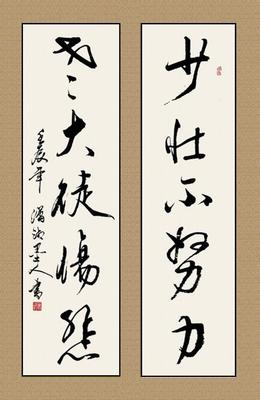 少壮不努力
老大徒傷悲
壬辰年 墨人書